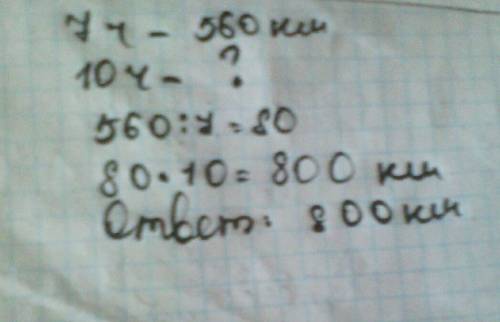 7 ч - 560 км
10 ч - ?
560:7=80
80·10= 800 км
Ответ: 800 км